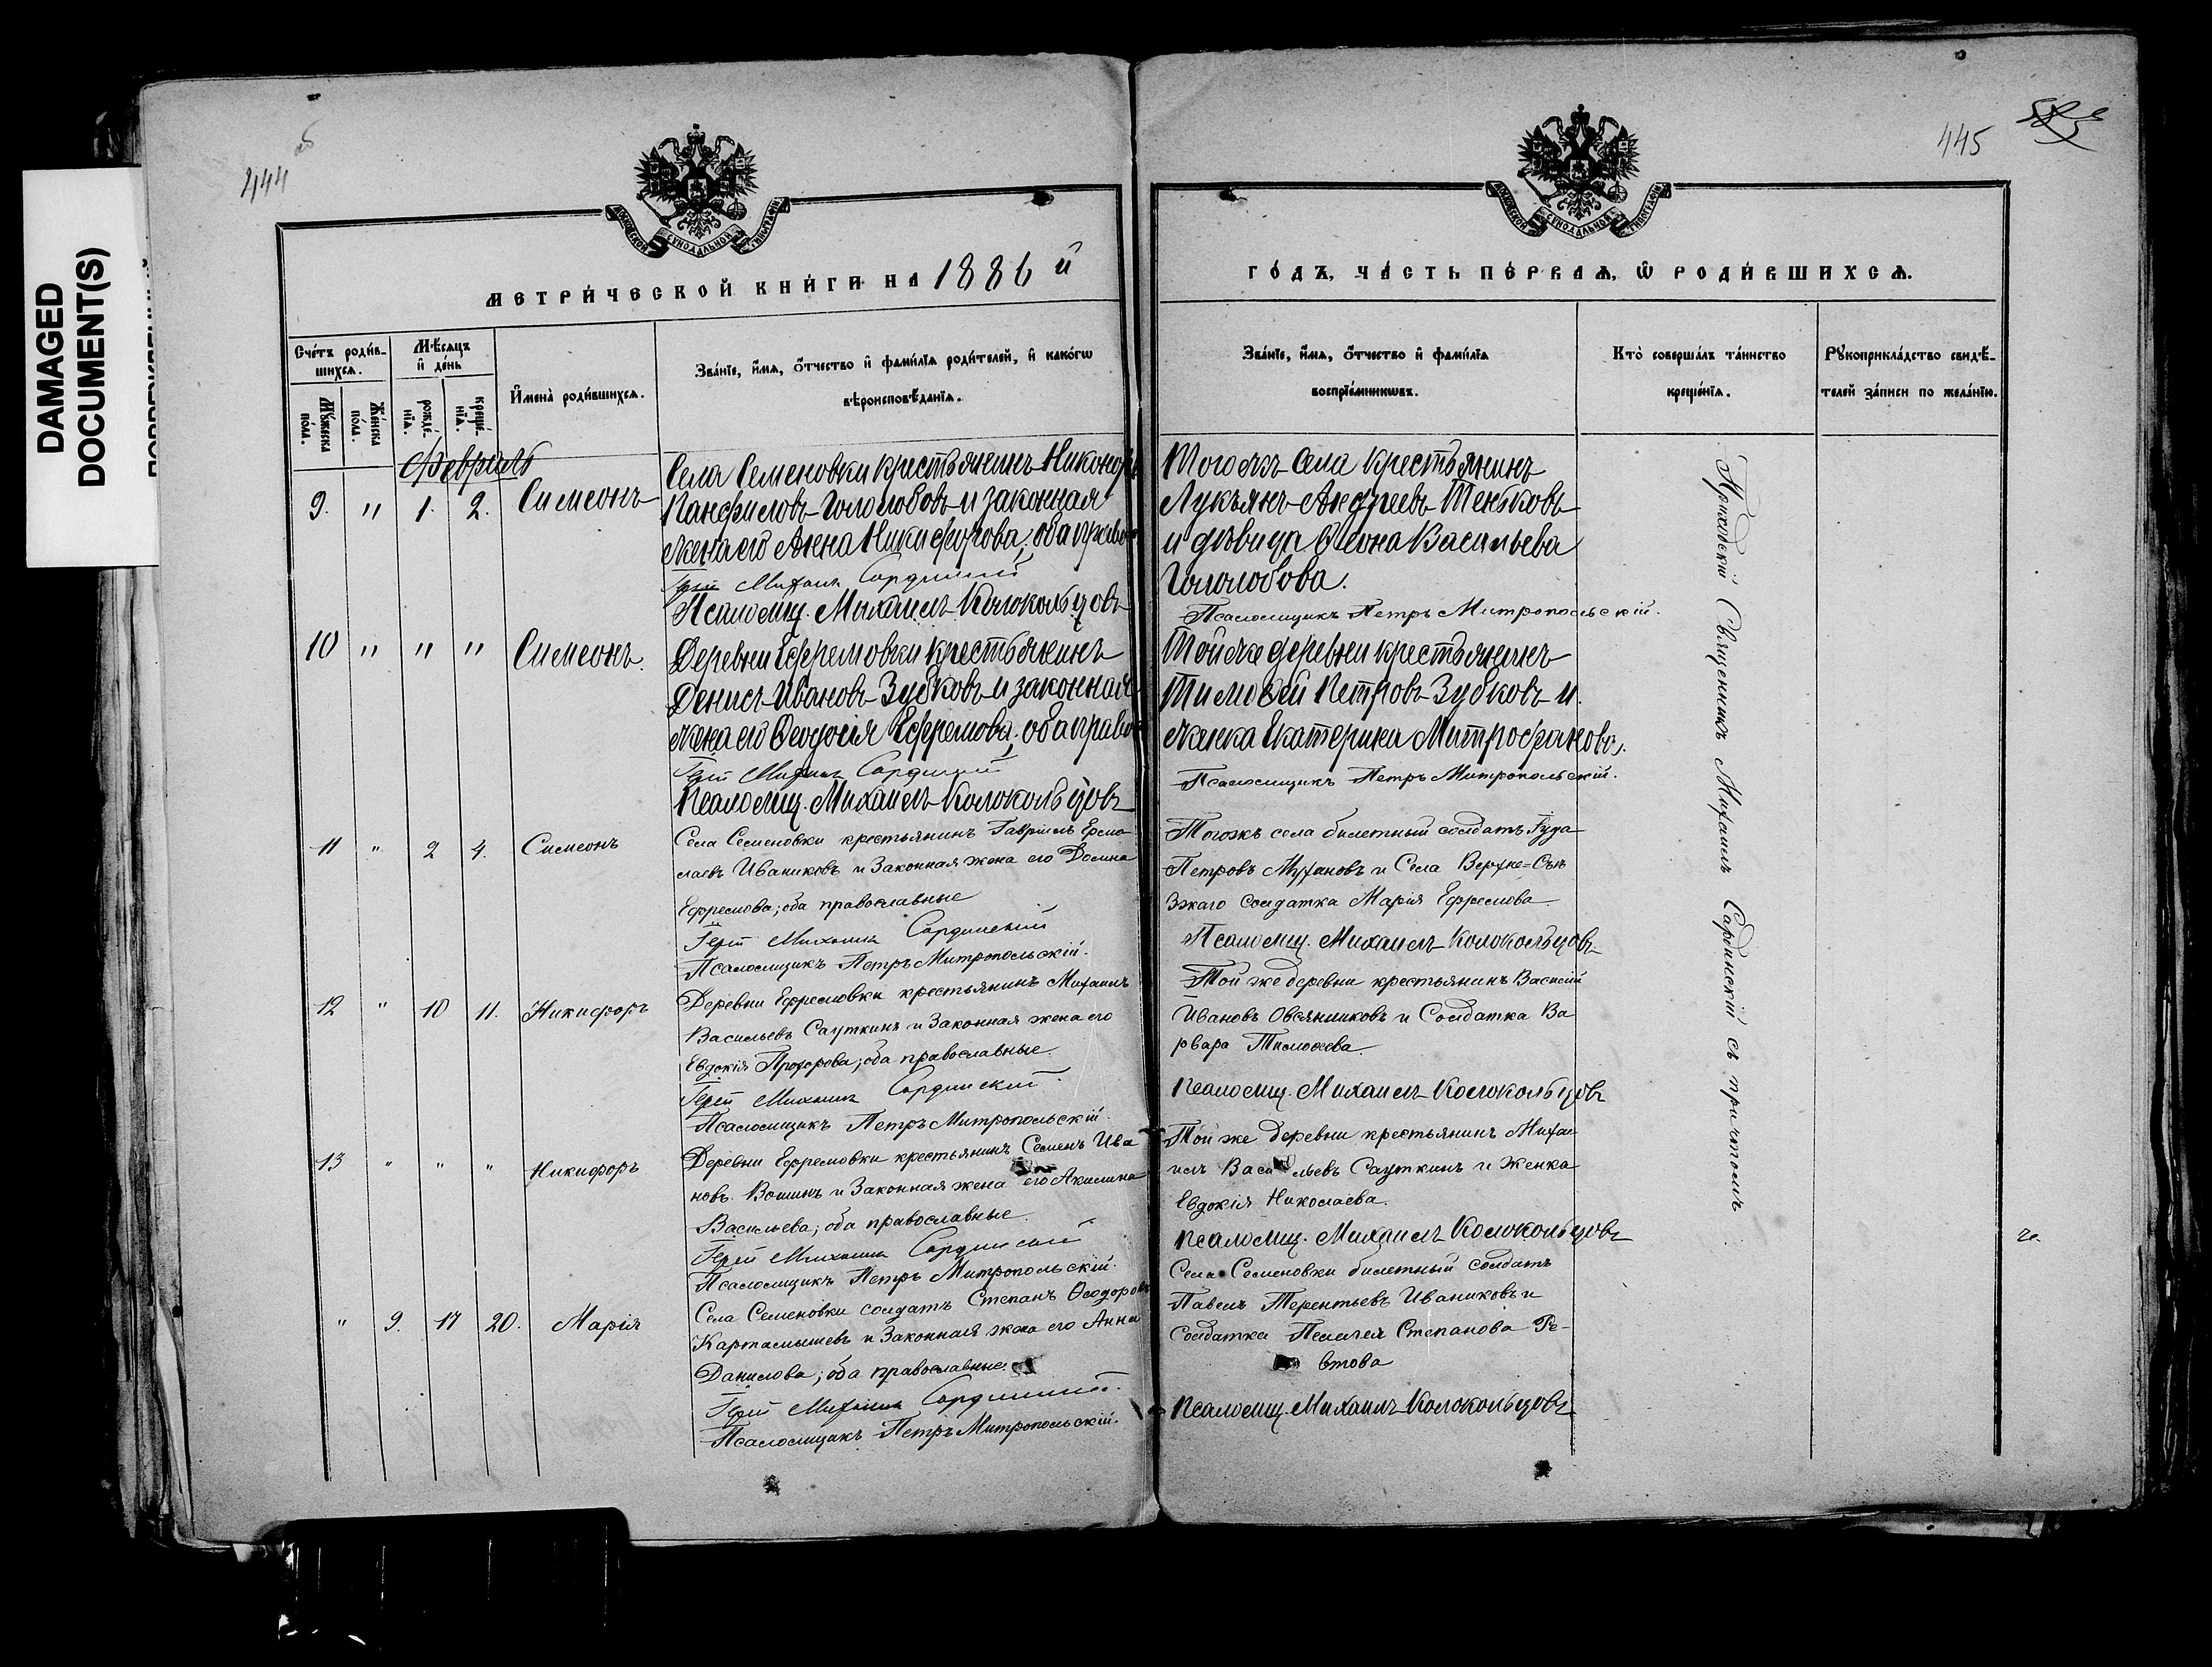 DAMAGED
DOCUMENT(S)
444 об
МОСКОВСКОЙ СѴНОДАЛЬНОЙ ТИПОГРАФІИ
МЕТРИ́ЧЕСКОЙ КНИ́ГИ НА 1886 й
Счётъ роди́в-
шихсѧ.
Мѣ́сѧцъ
и҆ де́нь
Мꙋ́жеска
по́ла.
Же́нска
по́ла.
рожде́-
нїѧ.
креще́-
нїѧ.
И҆мена̀ роди́вшихсѧ.
Зва́нїе, и҆́мѧ, ѻ҆́тчество и҆ фами́лїѧ роди́телей, и҆ како́гѡ
вѣроисповѣ́данїѧ.
Февраль
9. " 1. 2. Симеонъ
Села Семеновки крестьянинъ Никоноръ
Панфиловъ Гололобовъ и законная
жена его Анна Никифорова; оба право
Іерей Михаилъ Сардинскій
Псаломщ. Михаилъ Колокольцовъ
10 " " " Симеонъ.
Деревни Ефремовки крестьянинъ
Денисъ Ивановъ Зубковъ и законная
жена его Ѳеодосія Ефремова; оба право
Іерей Михаилъ Сардинскій
Псаломщ. Михаилъ Колокольцовъ
11 " 2 4. Симеонъ
Села Семеновки крестьянинъ Гавріилъ Ермо
лаевъ Иваниковъ и Законная жена его Домна
Ефремова; оба православные
Іерей Михаилъ Сардинскій
Псаломщикъ Петръ Митропольскій.
12 " 10 11. Никифоръ
Деревни Ефремовки крестьянинъ Михаилъ
Васильевъ Сауткинъ и Законная жена его
Евдокія Прохорова; оба православные.
Іерей Михаилъ Сардинскій
Псаломщикъ Петръ Митропольскій.
13 " " " Никифоръ
Деревни Ефремовки крестьянинъ Семенъ Ива
новъ Вошинъ и Законная жена его Акилина
Васильева; оба православные.
Іерей Михаилъ Сардинскій
Псаломщикъ Петръ Митропольскій.
" 9. 17 20. Марія
Села Семеновки солдатъ Степанъ Ѳеодоровъ
Картамышевъ и Законная жена его Анна
Данилова; оба православные.
Іерей Михаилъ Сардинскій
Псаломщикъ Петръ Митропольскій.
445
МОСКОВСКОЙ СѴНОДАЛЬНОЙ ТИПОГРАФІИ
ГО́ДЪ, ЧА́СТЬ ПЕ́РВАѦ, Ѽ РОДИ́ВШИХСѦ.
Зва́нїе, и҆́мѧ, ѻ҆́тчество и҆ фами́лїѧ
воспрїе́мникѡвъ.
Кто̀ соверша́лъ та́инство
креще́нїѧ.
Рꙋкоприкла́дство свидѣ́-
телей за́писи по жела́нїю.
Тогожъ Села Крестьянинъ
Лукъянъ Андреевъ Теньковъ
и дѣвица Ѳеона Васильева
Гололобова.
Псаломщикъ Петръ Митропольскій.
Тойже деревни крестьянинъ
Тимоѳей Петровъ Зубковъ и
женка Екатерина Митрофанова.
Псаломщикъ Петръ Митропольскій.
Тогожъ села билетный солдатъ Іуда
Петровъ Мухановъ и Села Верхне=Сѣнѣ
Солдатка Марія Ефремова
Псаломщ. Михаилъ Колокольцовъ
Той же деревни крестьянинъ Василій
Ивановъ Овсянниковъ и Солдатка Ва
рвара Тимоѳеева.
Псаломщ. Михаилъ Колокольцовъ
Той же деревни крестьянинъ Михаи
илъ Васильевъ Сауткинъ и Женка
Евдокія Николаева.
Псаломщ. Михаилъ Колокольцовъ
Села Семеновки билетный солдатъ
Павелъ Терентьевъ Иваниковъ и
Солдатка Пелагея Степанова Ре-
Псаломщ. Михаилъ Колокольцовъ
Приходскій Священникъ Михаилъ Сардинскій съ причтомъ